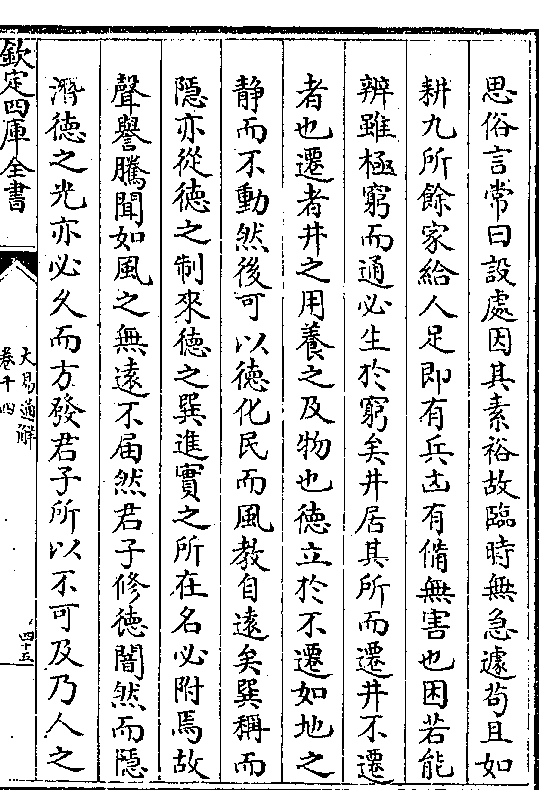 思俗言常曰設處因其素裕故臨時無急遽苟且如
耕九所餘家給人足即有兵凶有備無害也困若能
辨雖極窮而通必生於窮矣井居其所而遷井不遷
者也遷者井之用養之及物也德立於不遷如地之
静而不動然後可以德化民而風教自遠矣巽稱而
隱亦從德之制來德之巽進實之所在名必附焉故
聲譽騰聞如風之無遠不届然君子修德闇然而隱
濳德之光亦必久而方發君子所以不可及乃人之
欽定四庫全書
大易通解
卷十四
四十五